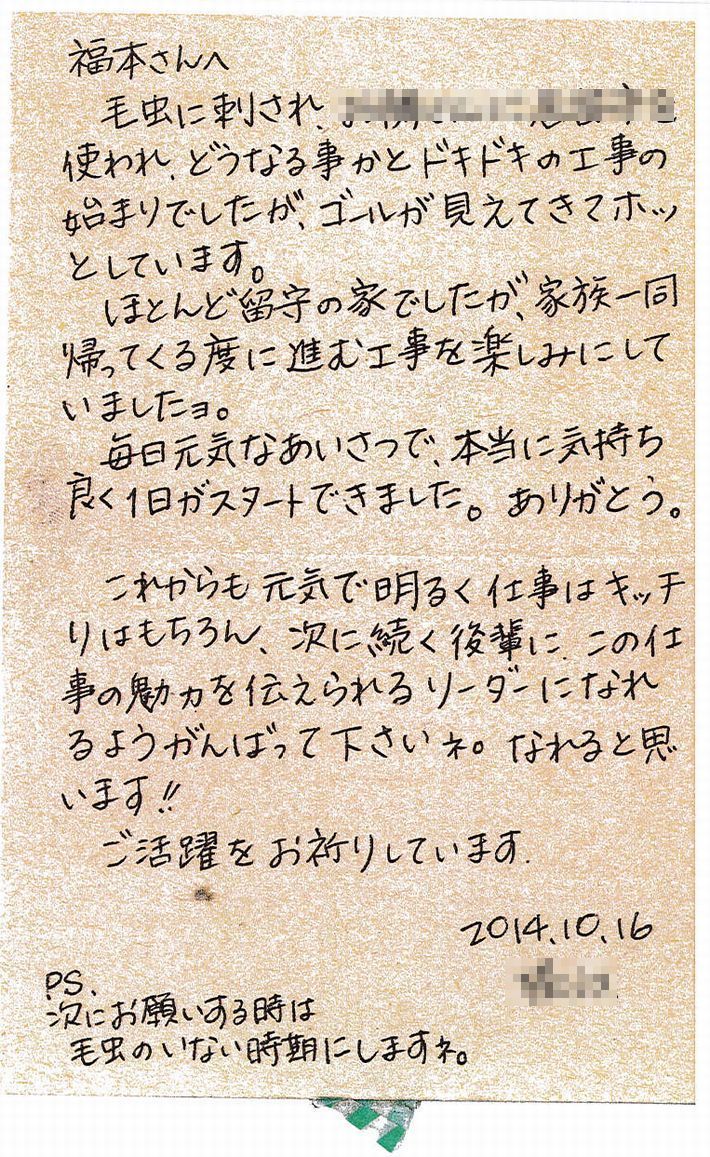 福本さんへ
毛虫に刺され、
使われ、どうなる事かとドキドキの工事の
始まりでしたが、ゴールが見えてきてホッ
としています。
ほとんど留守の家でしたが、家族一同
帰ってくる度に進む工事を楽しみにして
いましたョ。
毎日元気なあいさつで、本当に気持ち
良く1日がスタートできました。ありがとう。
これからも元気で明るく仕事はキッチ
リはもちろん、次に続く後輩に、この仕
事の魅力を伝えられるリーダーになれ
るようがんばって下さいネ。なれると思
います!!
ご活躍をお祈りしています.
2014.10.16
PS.
次にお願いする時は
毛虫のいない時期にしますネ。